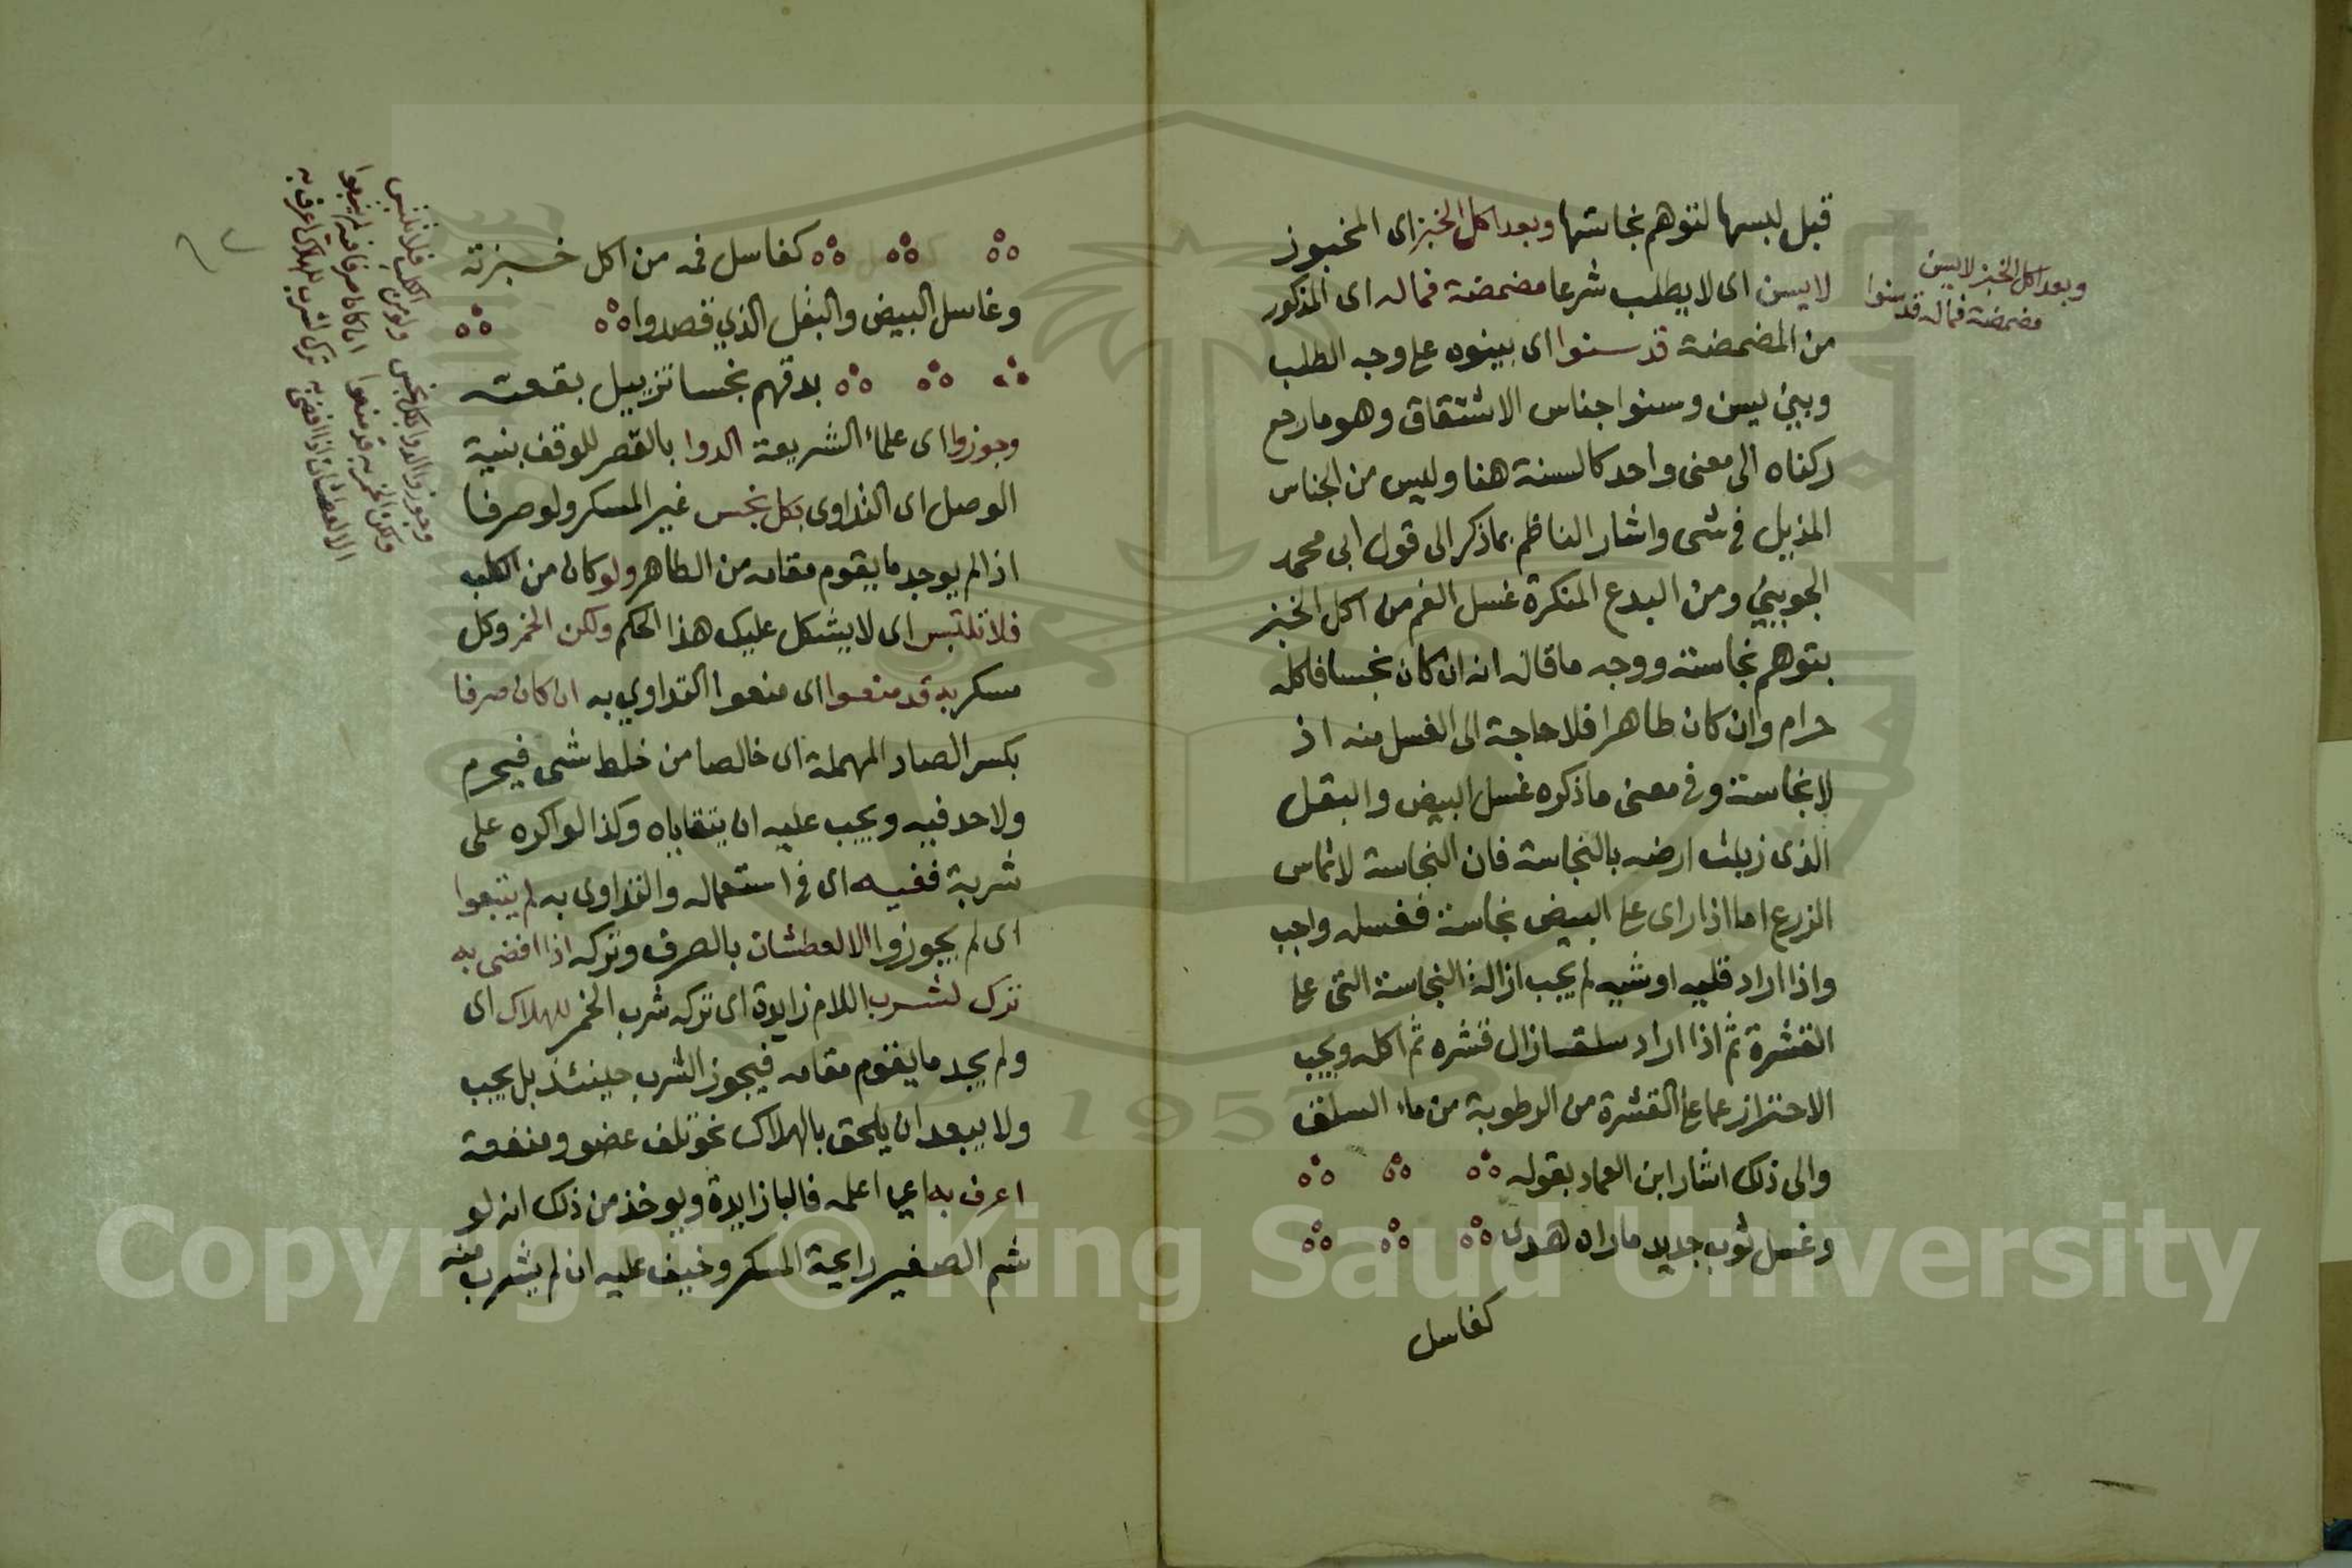 قبل لبسها لتوهم نجاستها وبعد اكل الخبز اى المخبوز
لايسن اى لا يطلب شرعا مضمضة فماله اى المذكور
من المضمضة قد سنوا اى بينوه على وجه الطلب
وبين يسن وسنوا جناس الاشتقاق وهو ما رجع
ركناه الى معنى واحد كالسنة هنا وليس من الجناس
المذيل فى شى واشار الناظم بما ذكر الى قول ابى محمد
الجوينى ومن البدع المنكرة غسل الفم من اكل الخبز
بتوهم نجاسته ووجه ما قاله انه ان كان نجسا فاكله
حرام وان كان طاهرا فلا حاجة الى الغسل منه اذ
لا نجاسة وفى معنى ما ذكره غسل البيض والبقل
الذى زبلت ارضه بالنجاسة فان النجاسة لا تماس
الزرع اما اذا راى على البيض نجاسة فغسله واجب
واذا اراد قليه او شيه لم يجب ازالة النجاسة التى على
القشرة ثم اذا اراد سلقه ازال قشره ثم اكله ويجب
الاحتراز عما على القشرة من الرطوبة من ماء السلق
والى ذلك اشار ابن العماد بقوله
وغسل ثوب جديد ماراه هدى
كغاسل
وبعد اكل الخبز لايسن
مضمضة فماله قد سنوا
كغاسل فمه من اكل خبزته
وغاسل البيض والبقل الذي قصدوا
بدقهم نجسا تزبيل بقعته
وجوزوا اى علماء الشريعة الدوا بالقصر للوقف بنية
الوصل اى التداوى بكل نجس غير المسكر ولو صرفا
اذا لم يوجد ما يقوم مقامه من الطاهر ولو كان من الكلب
فلا تلتبس اى لا يشكل عليك هذا الحكم ولكن الخمر وكل
مسكر به قد منعوا اى منعوا التداوي به ان كان صرفا
بكسر الصاد المهملة اى خالصا من خلط شى فيحرم
ولا حد فيه ويجب عليه ان يتقاياه وكذا لو اكره على
شربة ففيه اى فى استعماله والتداوى به لم يتبعوا
اى لم يجوزوا الا لعطشان بالصرف وتركه اذا افضى به
ترك لشرب اللام زايدة اى تركه شرب الخمر للهلاك اى
ولم يجد ما يقوم مقامه فيجوز الشرب حينئذ بل يجب
ولا يبعد ان يلحق بالهلاك نحو تلف عضو ومنفعة
اعرف به اي اعلمه فالبا زايدة ويوخذ من ذلك انه لو
شم الصغير رايحة المسكر وخيف عليه ان لم يشرب منه
وجوزوا الدوا بكل نجس ولو من الكلب فلا تلتبس
ولكن الخمر به قد منعوا ان كان صرفا ففيه لم يتبعوا
الا لعطشان اذا افضى به ترك لشرب للهلاك اعرف به
٦٢
Copyright © King Saud University
1957